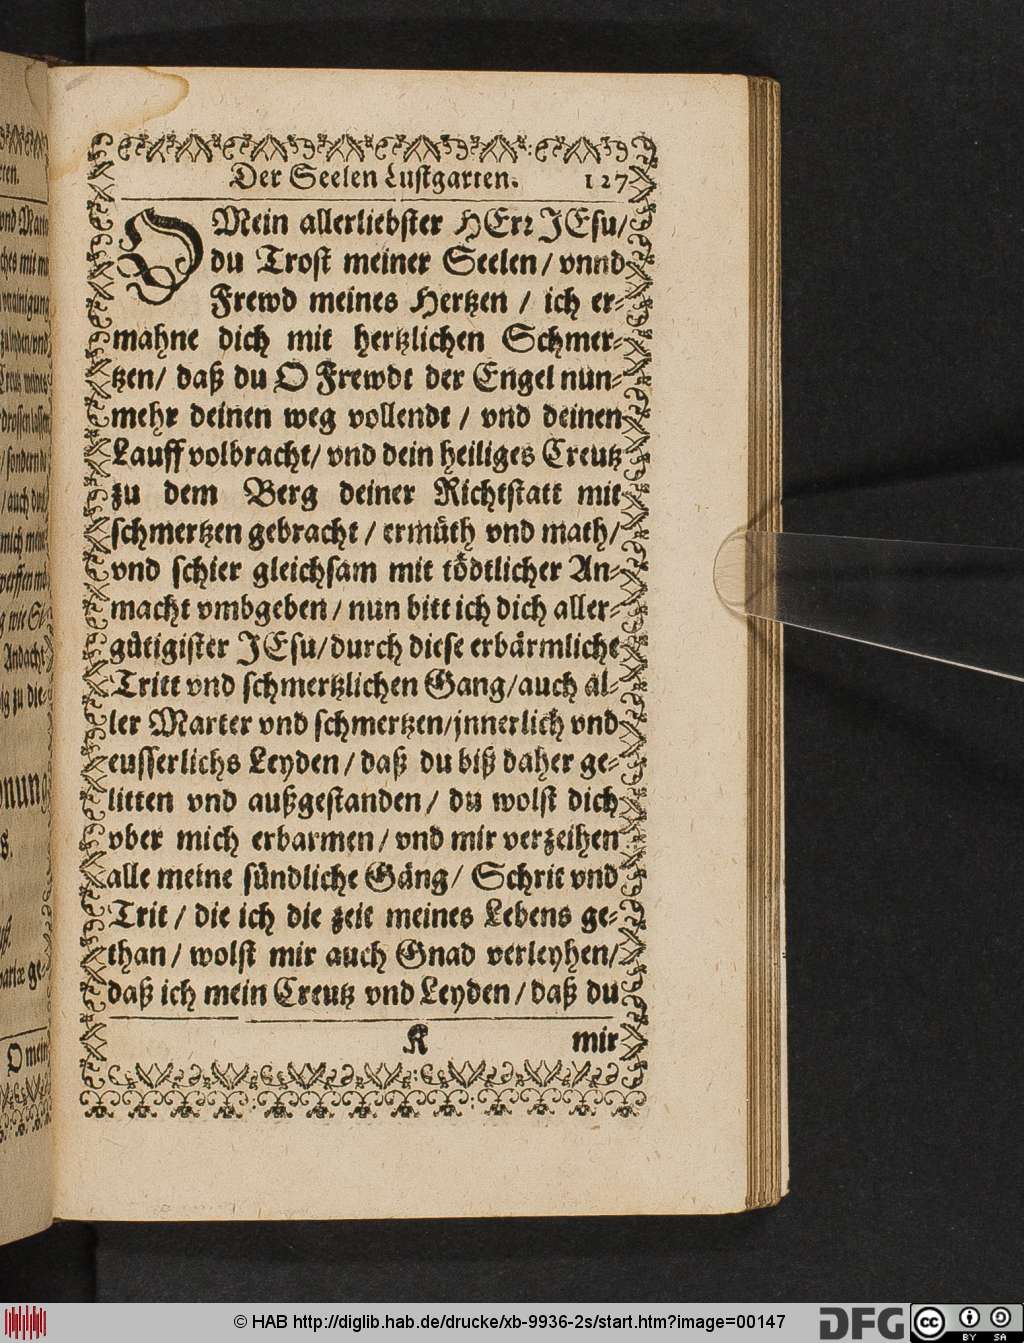 Der Seelen Lustgarten. 127
O Mein allerliebster HErr JEsu/
du Trost meiner Seelen/ vnnd
Frewd meines Hertzen / ich er-
mahne dich mit hertzlichen Schmer-
tzen/ daß du O Frewdt der Engel nun-
mehr deinen weg vollendt / vnd deinen
Lauff volbracht/ vnd dein heiliges Creutz
zu dem Berg deiner Richtstatt mit
schmertzen gebracht / ermüth vnd math/
vnd schier gleichsam mit tödtlicher An-
macht vmbgeben / nun bitt ich dich aller-
gütigister JEsu/ durch diese erbärmliche
Tritt vnd schmertzlichen Gang/ auch al-
ler Marter vnd schmertzen/ jnnerlich vnd
eusserlichs Leyden / daß du biß daher ge-
litten vnd außgestanden / du wolst dich
vber mich erbarmen / vnd mir verzeihen
alle meine sündliche Gäng/ Schrit vnd
Trit / die ich die zeit meines Lebens ge-
than / wolst mir auch Gnad verleyhen/
daß ich mein Creutz vnd Leyden / daß du
K mir
© HAB http://diglib.hab.de/drucke/xb-9936-2s/start.htm?image=00147
DFG
cc BY SA